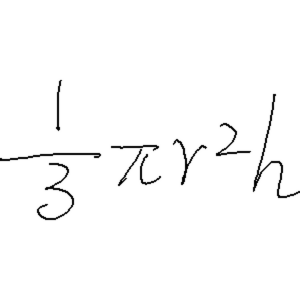 \frac{1}{3}πr²h